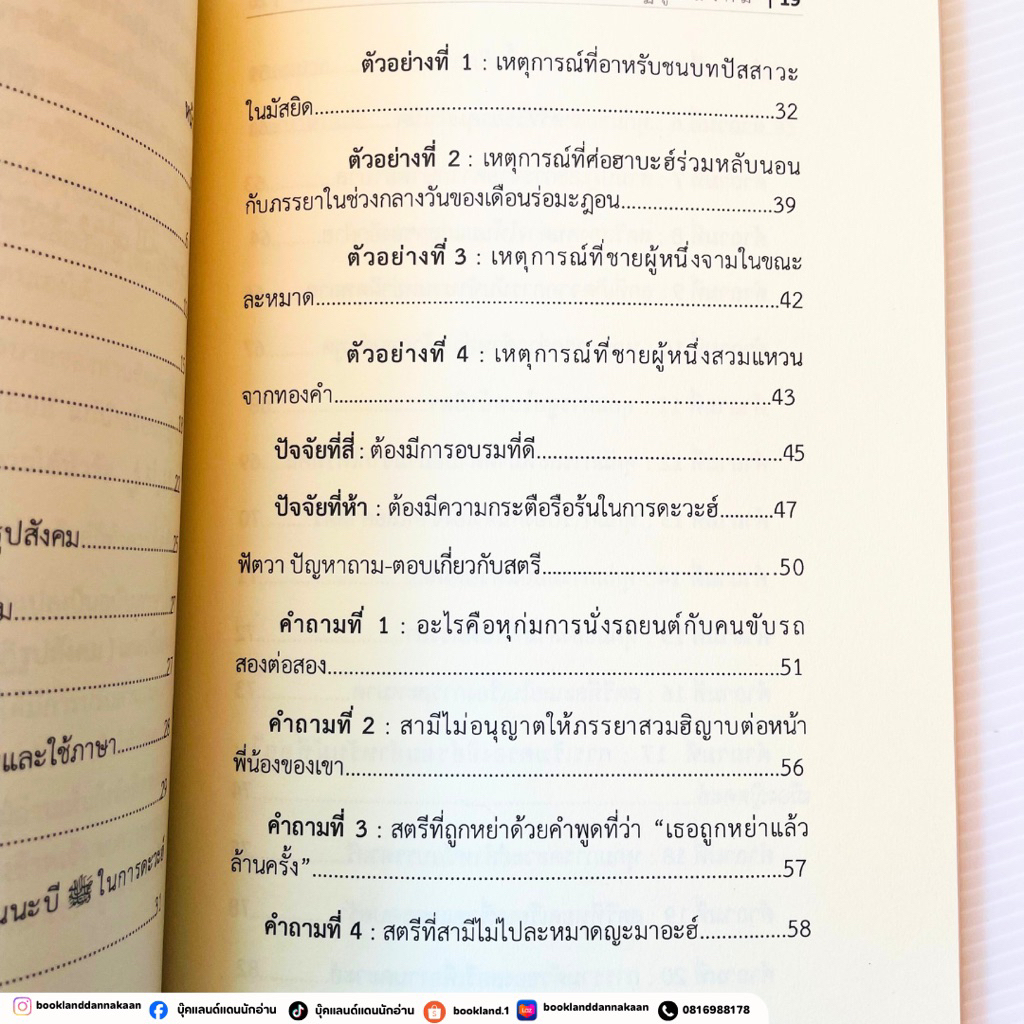 รูปสังคม.....25
และใช้ภาษา.....28
29
ในการดะวะฮ์
31
19
ตัวอย่างที่ 1 : เหตุการณ์ที่อาหรับชนบทปัสสาวะ
ในมัสยิด.....32
ตัวอย่างที่ 2 : เหตุการณ์ที่ศ่อฮาบะฮ์ร่วมหลับนอน
กับภรรยาในช่วงกลางวันของเดือนร่อมะฎอน.....39
ตัวอย่างที่ 3 : เหตุการณ์ที่ชายผู้หนึ่งจามในขณะ
ละหมาด.....42
ตัวอย่างที่ 4 : เหตุการณ์ที่ชายผู้หนึ่งสวมแหวน
จากทองคำ.....43
ปัจจัยที่สี่ : ต้องมีการอบรมที่ดี.....45
ปัจจัยที่ห้า : ต้องมีความกระตือรือร้นในการดะวะฮ์.....47
ฟัตวา ปัญหาถาม-ตอบเกี่ยวกับสตรี.....50
คำถามที่ 1 : อะไรคือหุก่มการนั่งรถยนต์กับคนขับรถ
สองต่อสอง.....51
คำถามที่ 2 : สามีไม่อนุญาตให้ภรรยาสวมฮิญาบต่อหน้า
พี่น้องของเขา.....56
คำถามที่ 3 : สตรีที่ถูกหย่าด้วยคำพูดที่ว่า “เธอถูกหย่าแล้ว
ล้านครั้ง”.....57
คำถามที่ 4 : สตรีที่สามีไม่ไปละหมาดญะมาอะฮ์.....58
booklanddannakaan บุ๊คแลนด์แดนนักอ่าน บุ๊คแลนด์แดนนักอ่าน bookland.1 booklanddannakaan 0816988178